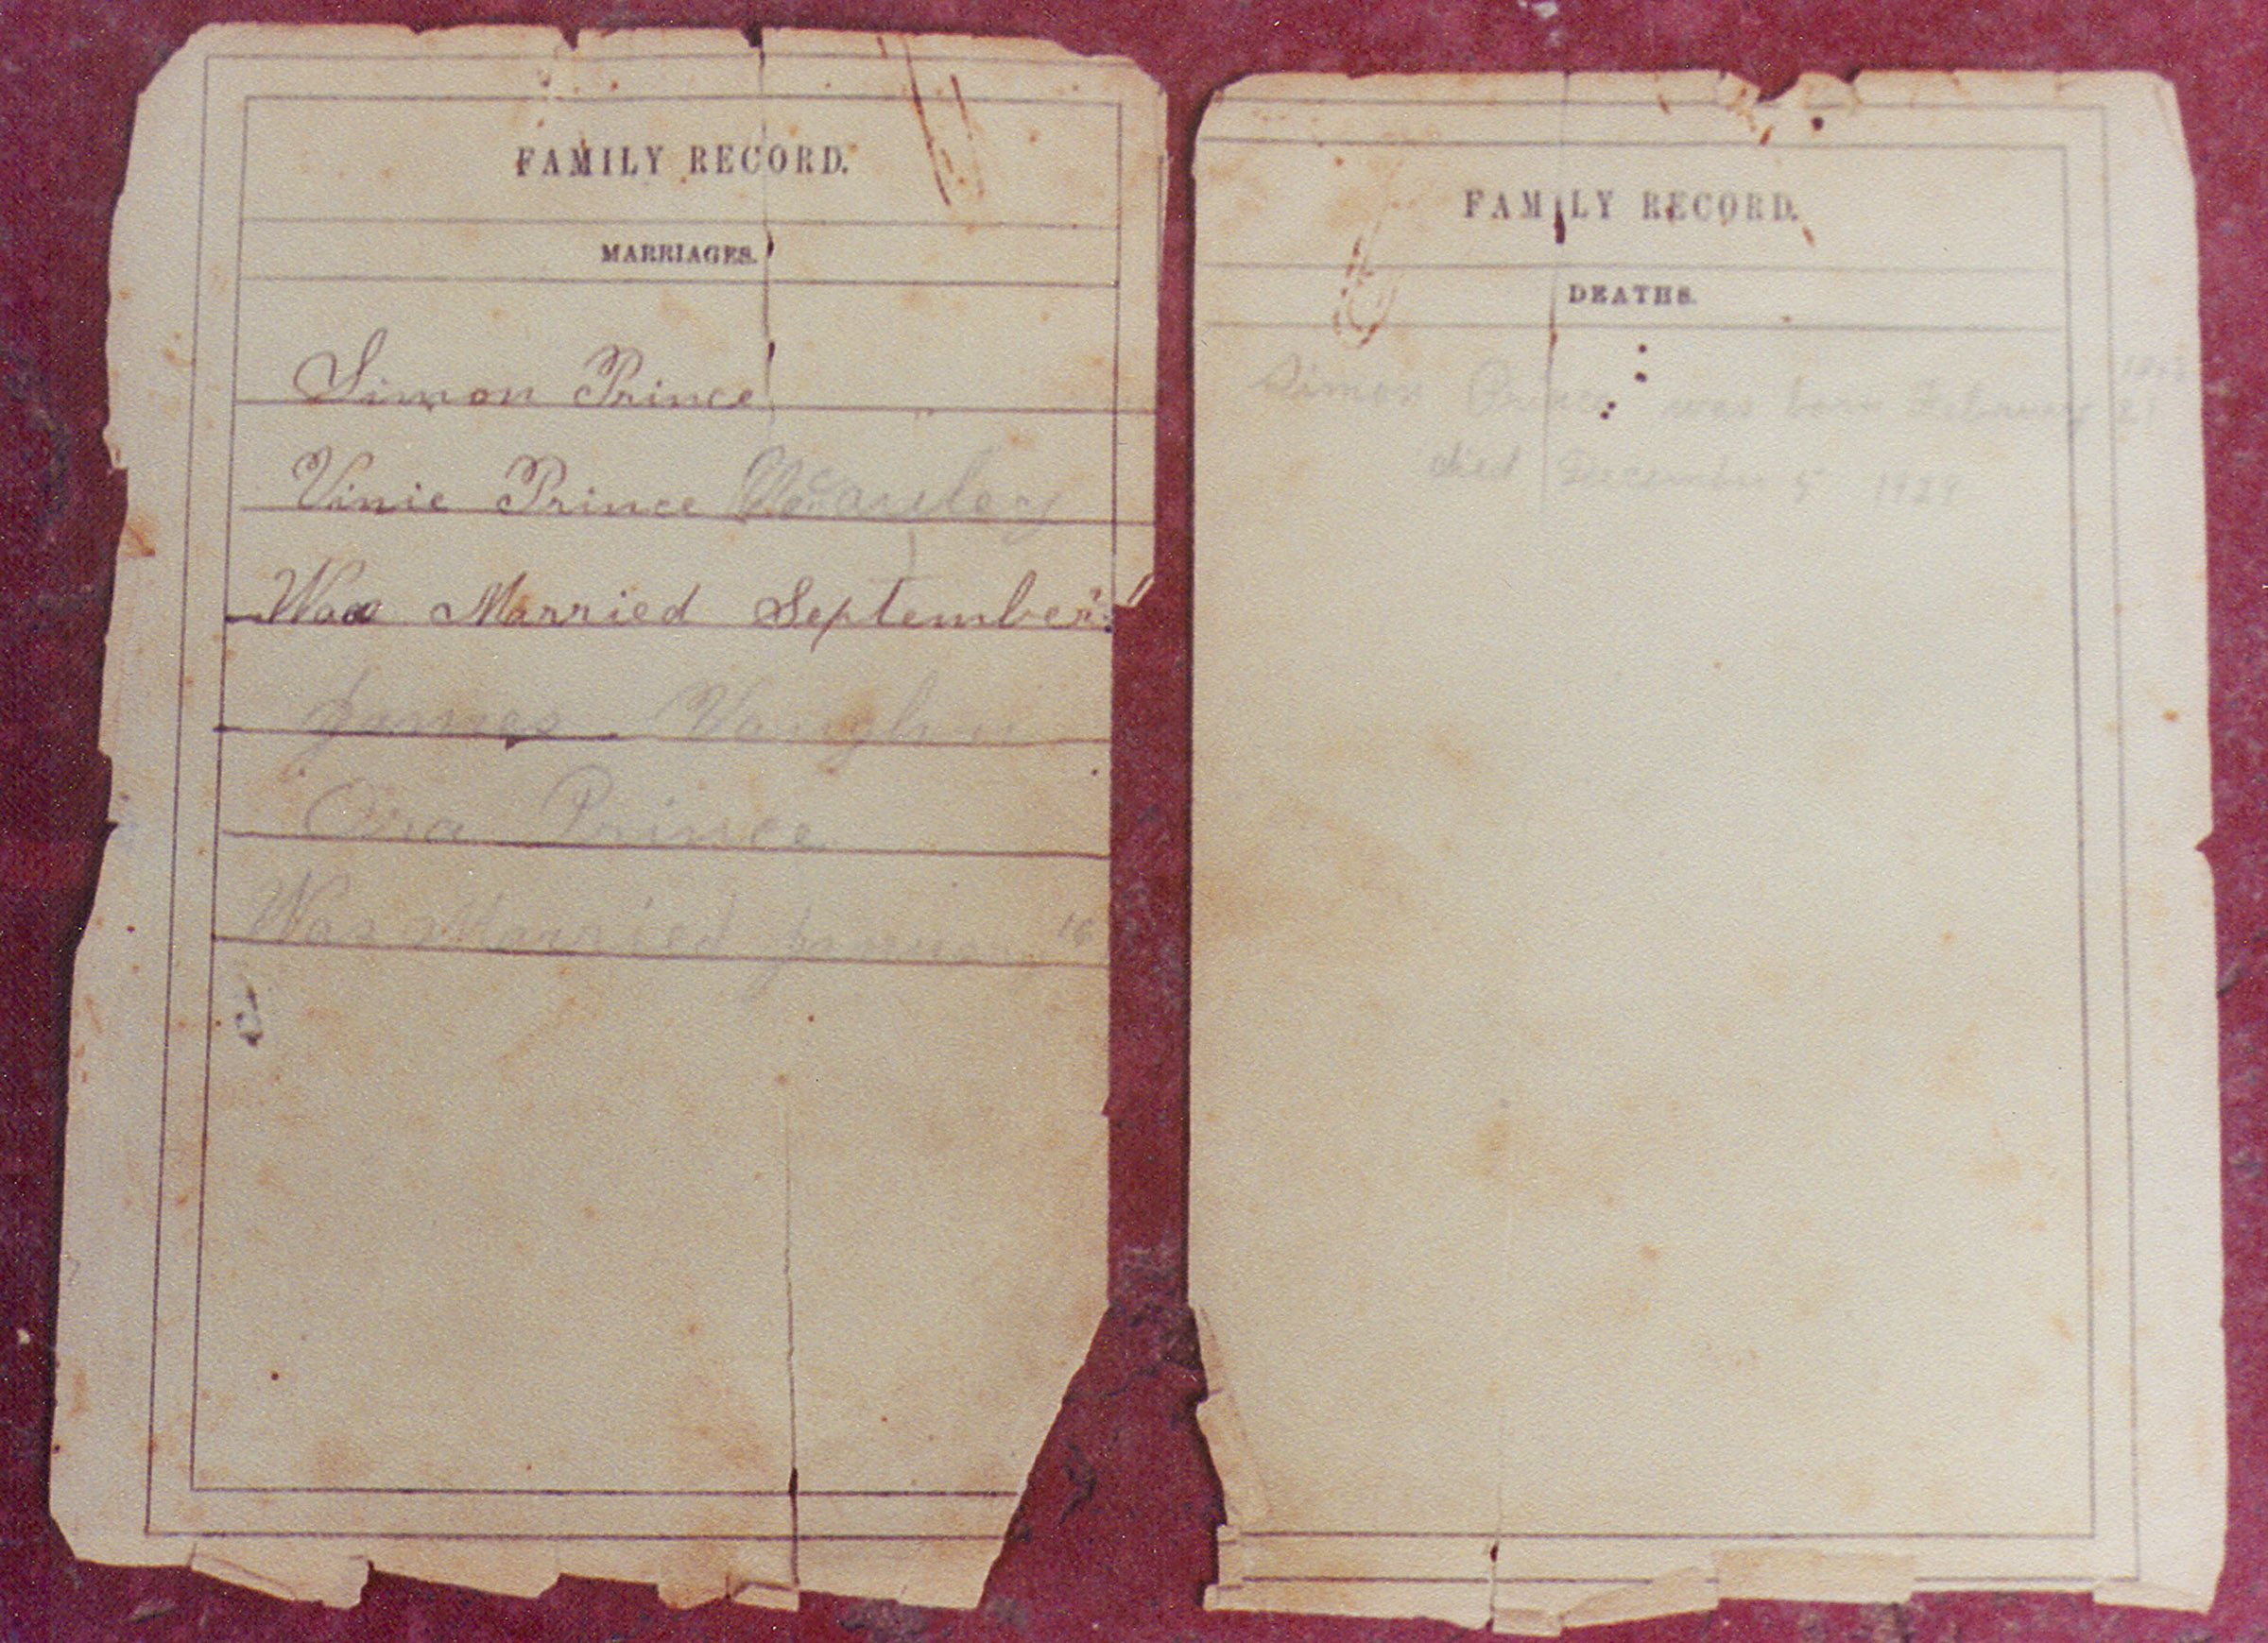 FAMILY RECORD.
MARRIAGES.
Simon Prince
Vinie Prince McCauley
Was Married September
James Vaughn
Ora Prince
Was Married January 16
FAMILY RECORD.
DEATHS.
Simon Prince was born February 21
died December 5 1929